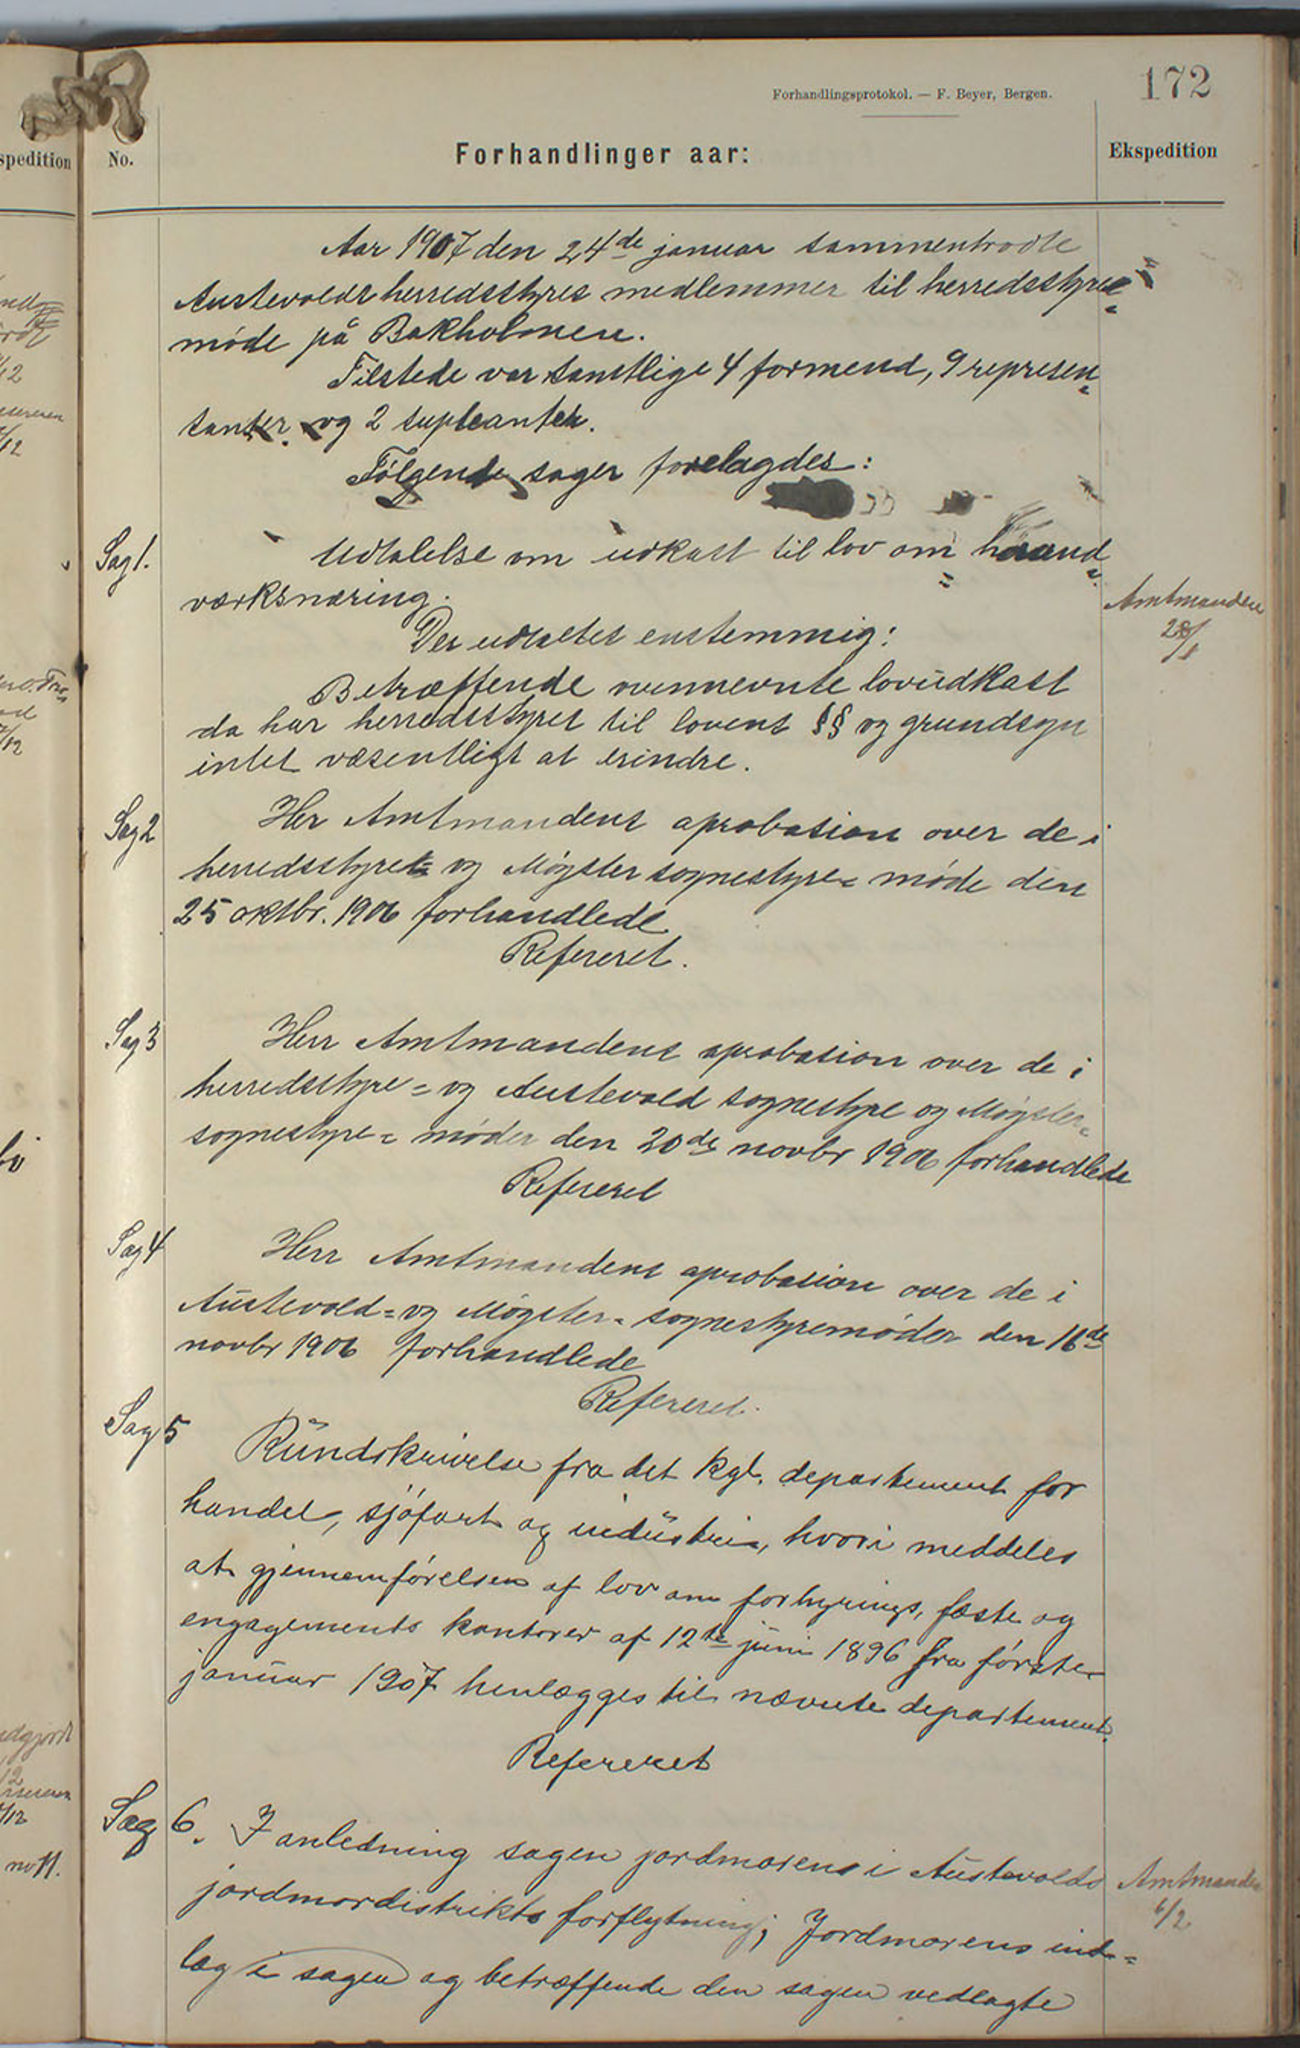 172
Forhandlingsprotokol. — F. Beyer, Bergen.
spedition No. Forhandlinger aar: Ekspedition
Aar 1907 den 24de januar sammentraadte
Austevolds herredsstyres medlemmer til herredsstyre=
møde på Bakholmen.
Tilstede var samtlige 4 formend, 9 represen=
tanter og 2 supleanter.
Følgende sager forelagdes:
Sag 1. Udtalelse om udkast til lov om haand=
værksnæring.
Amtmanden
28/1
Der udtaltes enstemmig:
Betræffende ovennevnte lovudkast
da har herredsstyret til lovens §§ og grundsyn
intet væsentligt at erindre.
Sag 2 Her Amtmandens aprobation over de i
herredsstyre= og Møgster sognestyre= møde den
25 oktbr. 1906 forhandlede
Refereret.
Sag 3 Herr Amtmandens aprobation over de i
herredsstyre= og Austevold sognestyre og Møgster=
sognestyre= møder den 20de novbr 1906 forhandlede
Refereret
Sag 4 Herr Amtmandens aprobation over de i
Austevold= og Møgster= sognestyremøder den 16de
novbr 1906 forhandlede
Refereret.
Sag 5 Rundskrivelse fra det kgl. departement for
handel, sjøfart og industri, hvori meddeles
at gjennemførelsen af lov om forhyrings, fæste og
engagements kontorer af 12te juni 1896 fra første
januar 1907 henlægges til nævnte departement.
Refereret
Sag 6. I anledning sagen jordmorens i Austevolds
jordmordistrikts forflytning; Jordmorens ind=
læg i sagen og betræffende den sagen vedlagte
Amtmanden
6/2